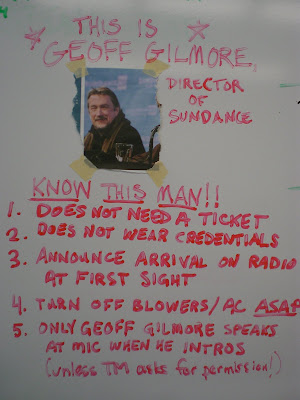 THIS IS
GEOFF GILMORE,
DIRECTOR
OF
SUNDANCE
KNOW THIS MAN!!
1. DOES NOT NEED A TICKET
2. DOES NOT WEAR CREDENTIALS
3. ANNOUNCE ARRIVAL ON RADIO
AT FIRST SIGHT
4. TURN OFF BLOWERS/AC ASAP
5. ONLY GEOFF GILMORE SPEAKS
AT MIC WHEN HE INTROS
(unless TM asks for permission!)